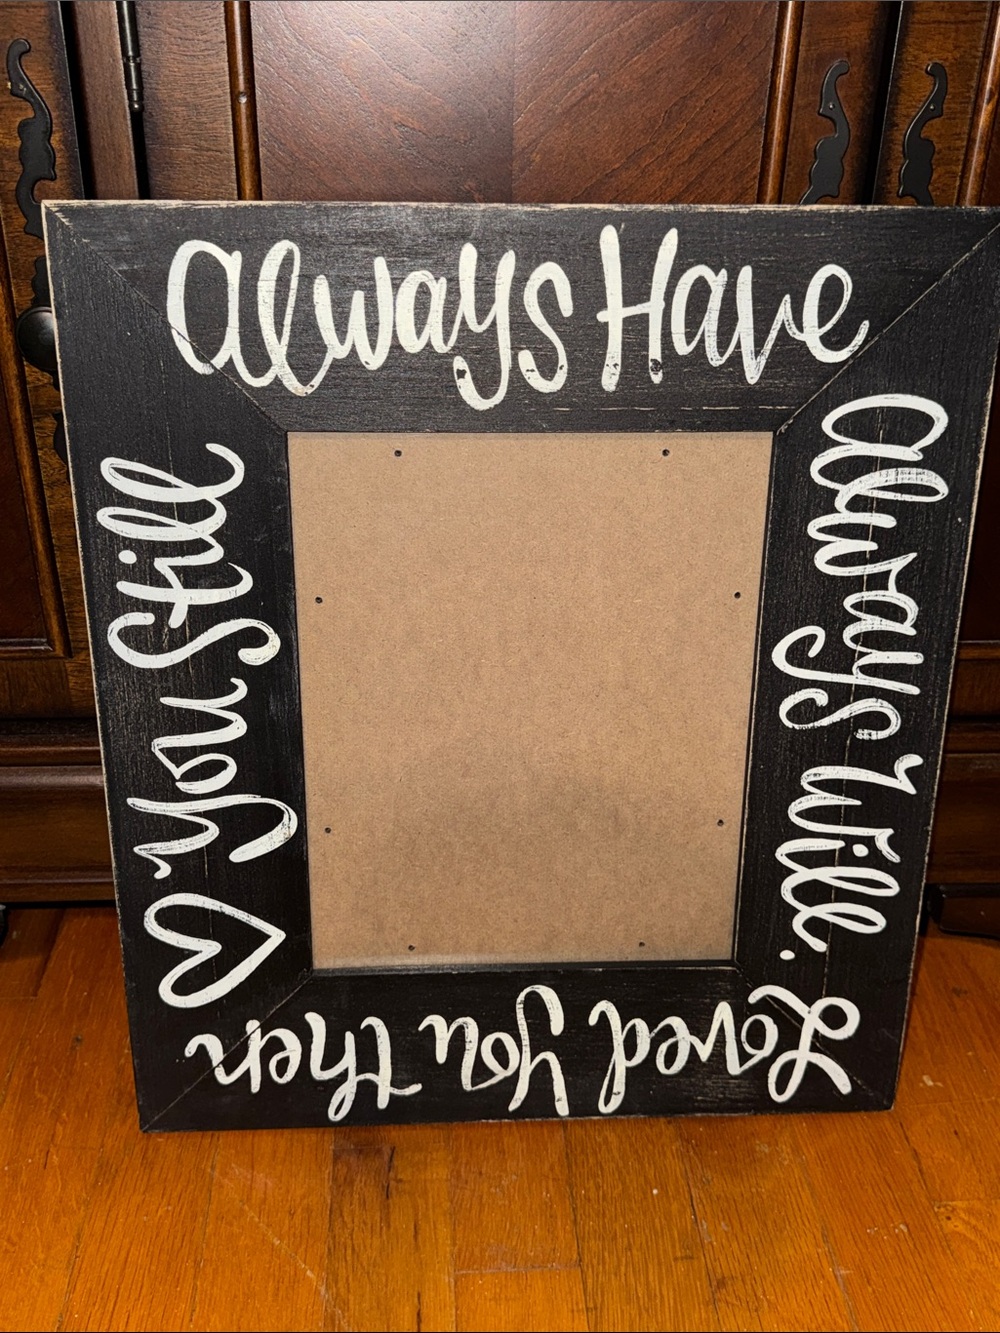 always Have
always Will.
Loved you then
you Still